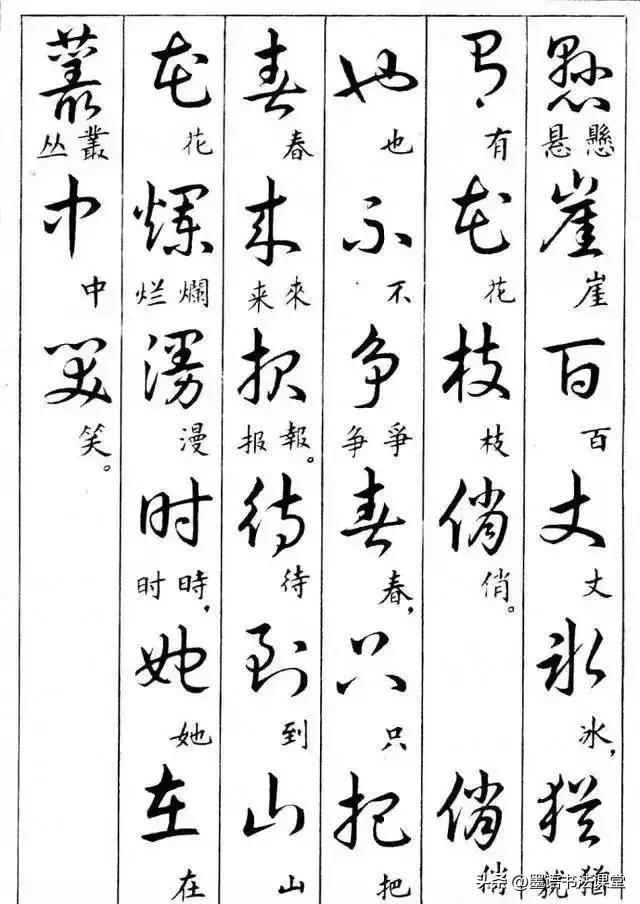 懸崖百丈冰猶
懸悬崖百丈冰，猶犹
有花枝俏俏
有花枝俏。俏
也不争春只把
也不爭争春，只把
春来报待到山
春來来報报。待到山
花烂漫时她在
花爛烂漫時时，她在
叢中笑
叢丛中笑。
头条 @墨语书法课堂